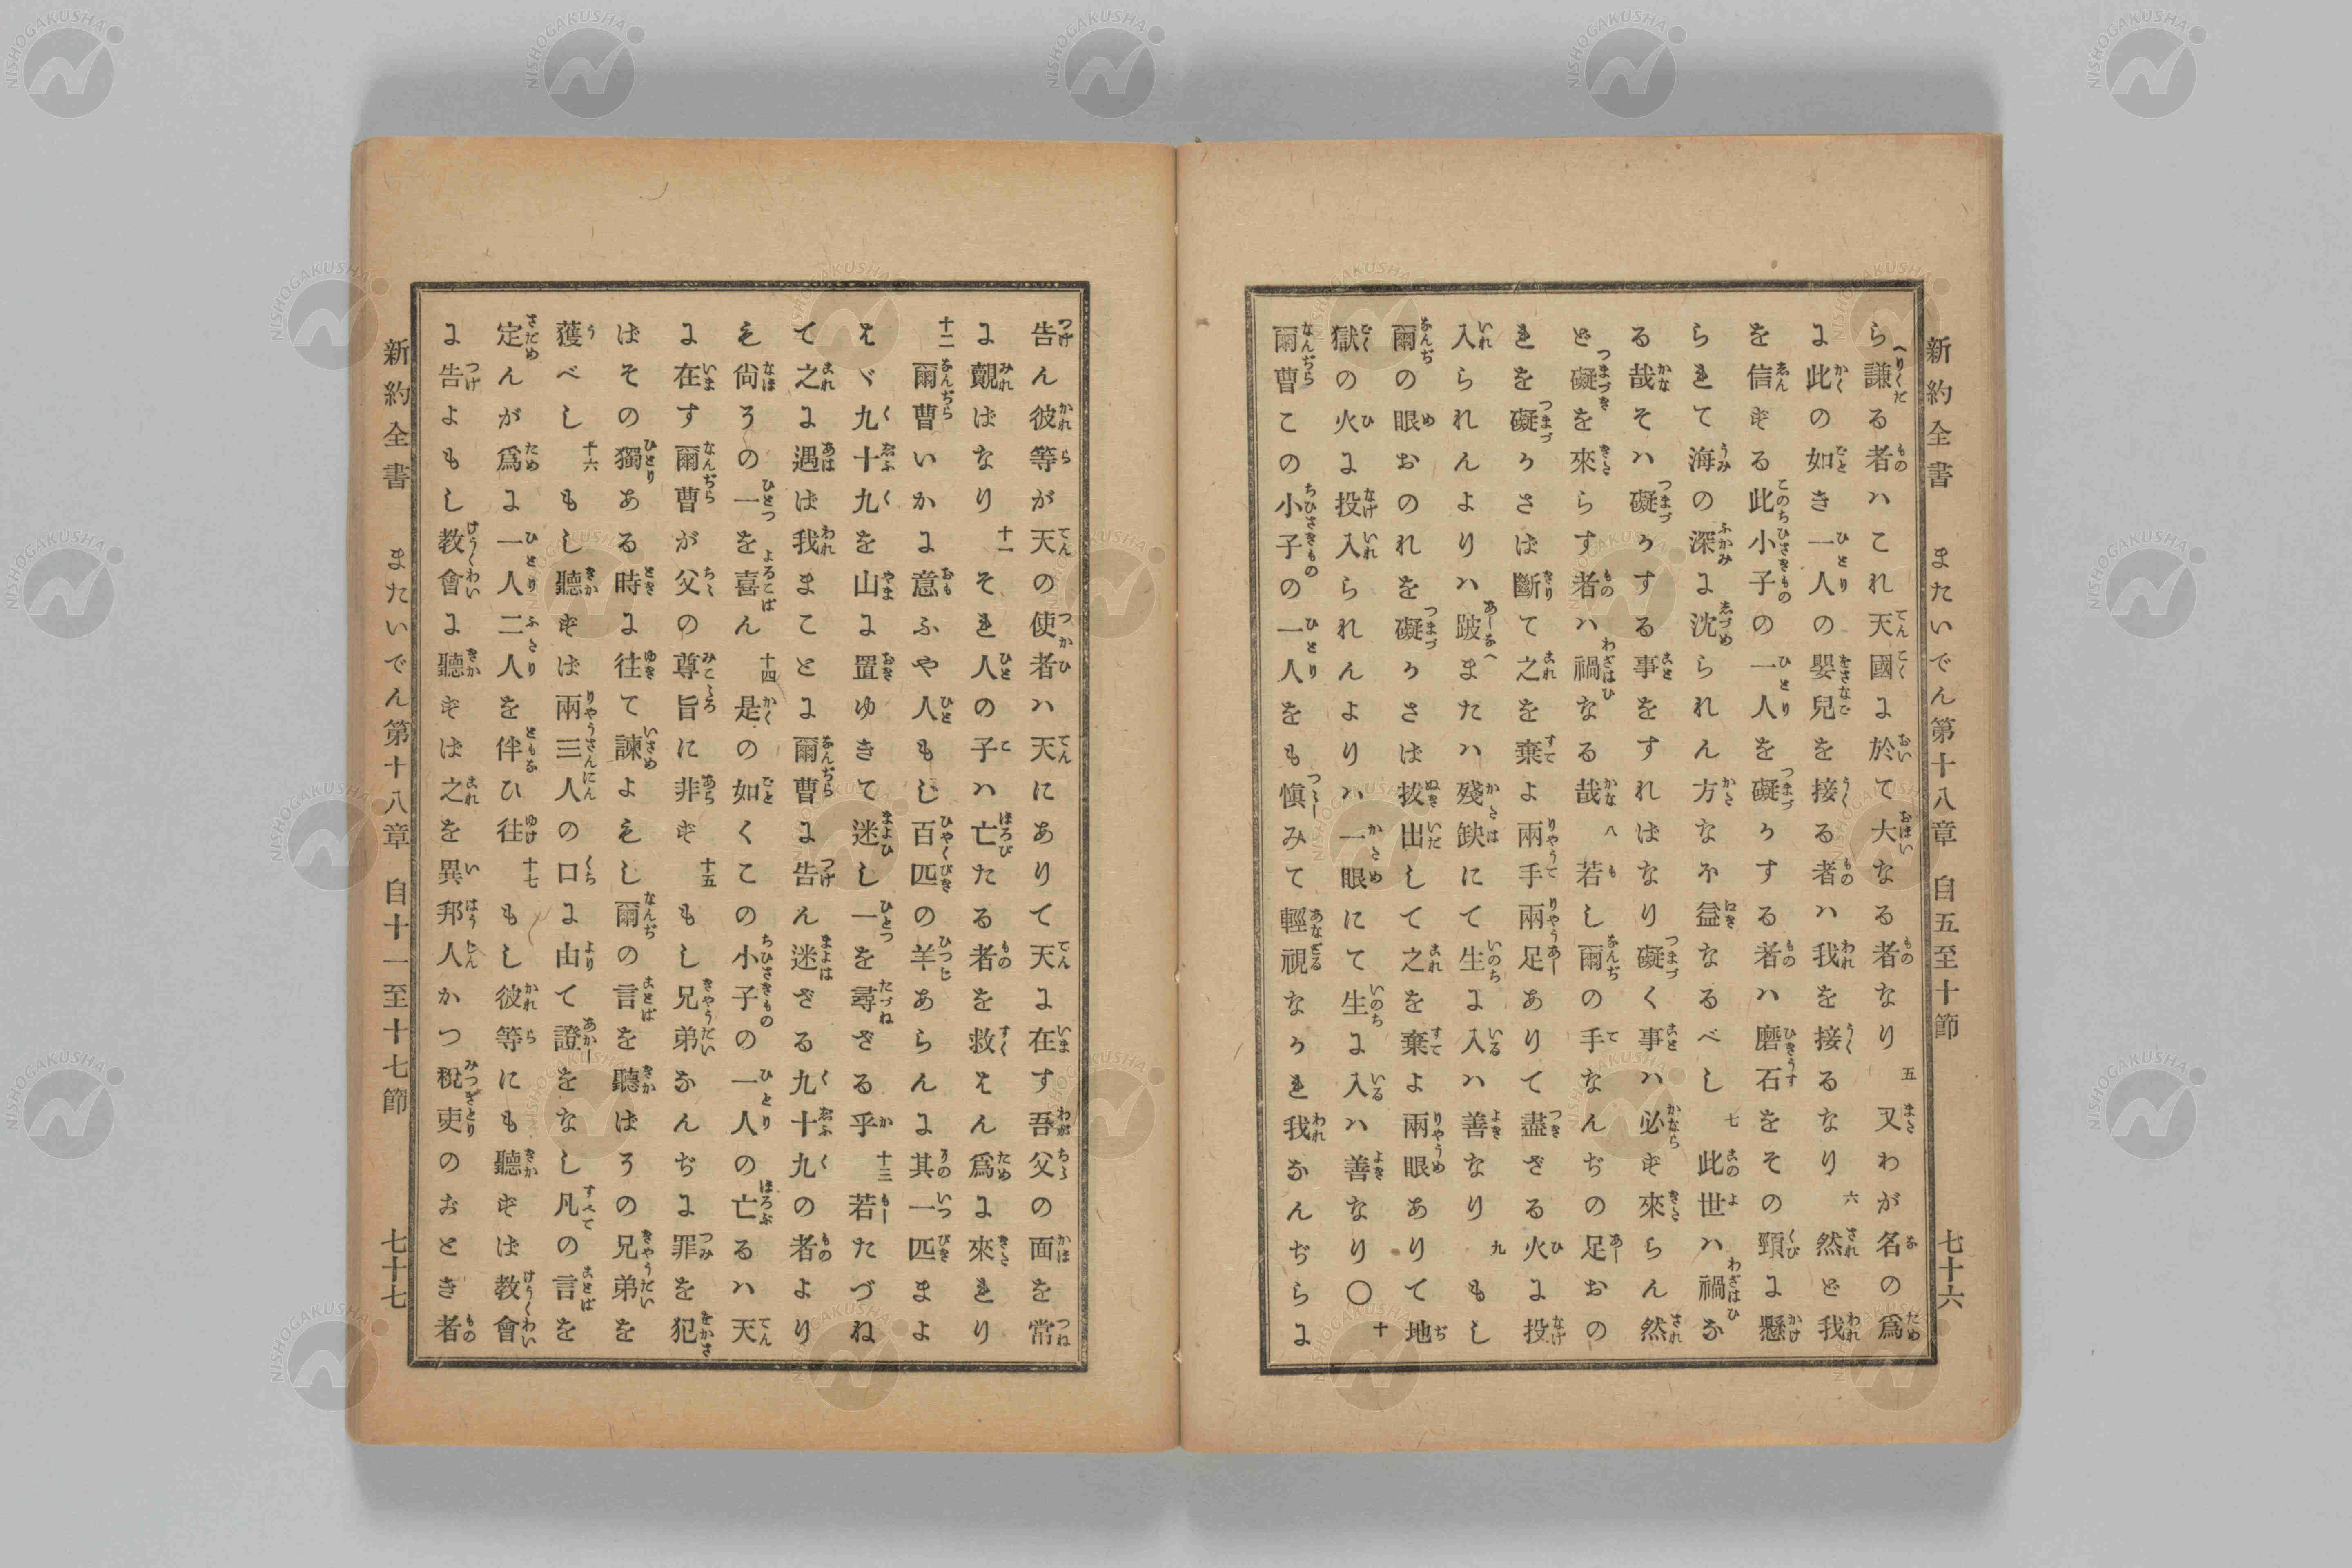 新約全書 またいでん第十八章 自五至十節 七十六
ら謙る者ハこれ天國に於て大なる者なり 五 又わが名の爲
に此の如き一人の嬰兒を接る者ハ我を接るなり 六 然ど我
を信ずる此小子の一人を礙かする者ハ磨石をその頸に懸
られて海の深に沈られん方なほ益なるべし 七 此世ハ禍な
る哉そハ礙かする事をすればなり礙く事ハ必ず來らん然
ど礙を來らす者ハ禍なる哉 八 若し爾の手なんぢの足おの
れを礙かさば斷て之を棄よ兩手兩足ありて盡ざる火に投
入られんよりハ跛または殘缺にて生に入ハ善なり 九 もし
爾の眼おのれを礙かさば抜出して之を棄よ兩眼ありて地
獄の火に投入られんよりハ一眼にて生に入ハ善なり〇 十
爾曹この小子の一人をも愼みて輕視なかれ我なんぢらに
告ん彼等が天の使者ハ天にありて天に在す吾父の面を常
に覿ばなり 十一 それ人の子ハ亡たる者を救はん爲に來れり
十二 爾曹いかに意ふや人もし百匹の羊あらんに其一匹まよ
はゞ九十九を山に置ゆきて迷し一を尋ざる乎 十三 若たづね
て之に遇ば我まことに爾曹に告ん迷はざる九十九の者より
も尙その一を喜ばん 十四 是の如くこの小子の一人の亡るハ天
に在す爾曹が父の尊旨に非ず 十五 もし兄弟なんぢに罪を犯
ばその獨ある時に往て諫よもし爾の言を聽ばその兄弟を
獲べし 十六 もし聽ずば兩三人の口に由て證をなし凡の言を
定んが爲に一人二人を伴ひ往 十七 もし彼等にも聽ずば教會
に告よもし教會に聽ずば之を異邦人かつ税吏のおとき者
新約全書 またいでん第十八章 自十一至十七節 七十七